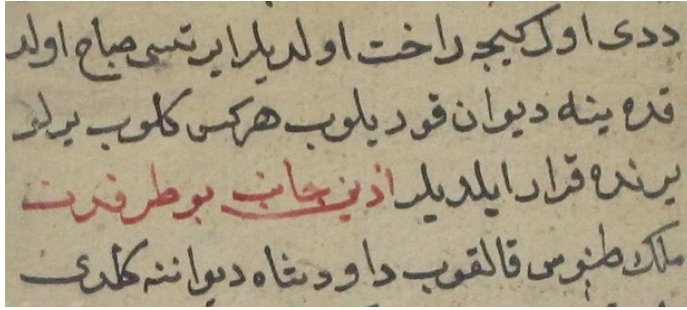 ددی اول کیجه راخت اولدیلر ایرتسی صباح اولد
قده ینه دیوان قوریلوب هرکس کلوب یرلو
یرنده قرار ایلدیلر اذین جانب بو طرفدن
ملک طنوس قالقوب داود شاه دیواننه کلدی